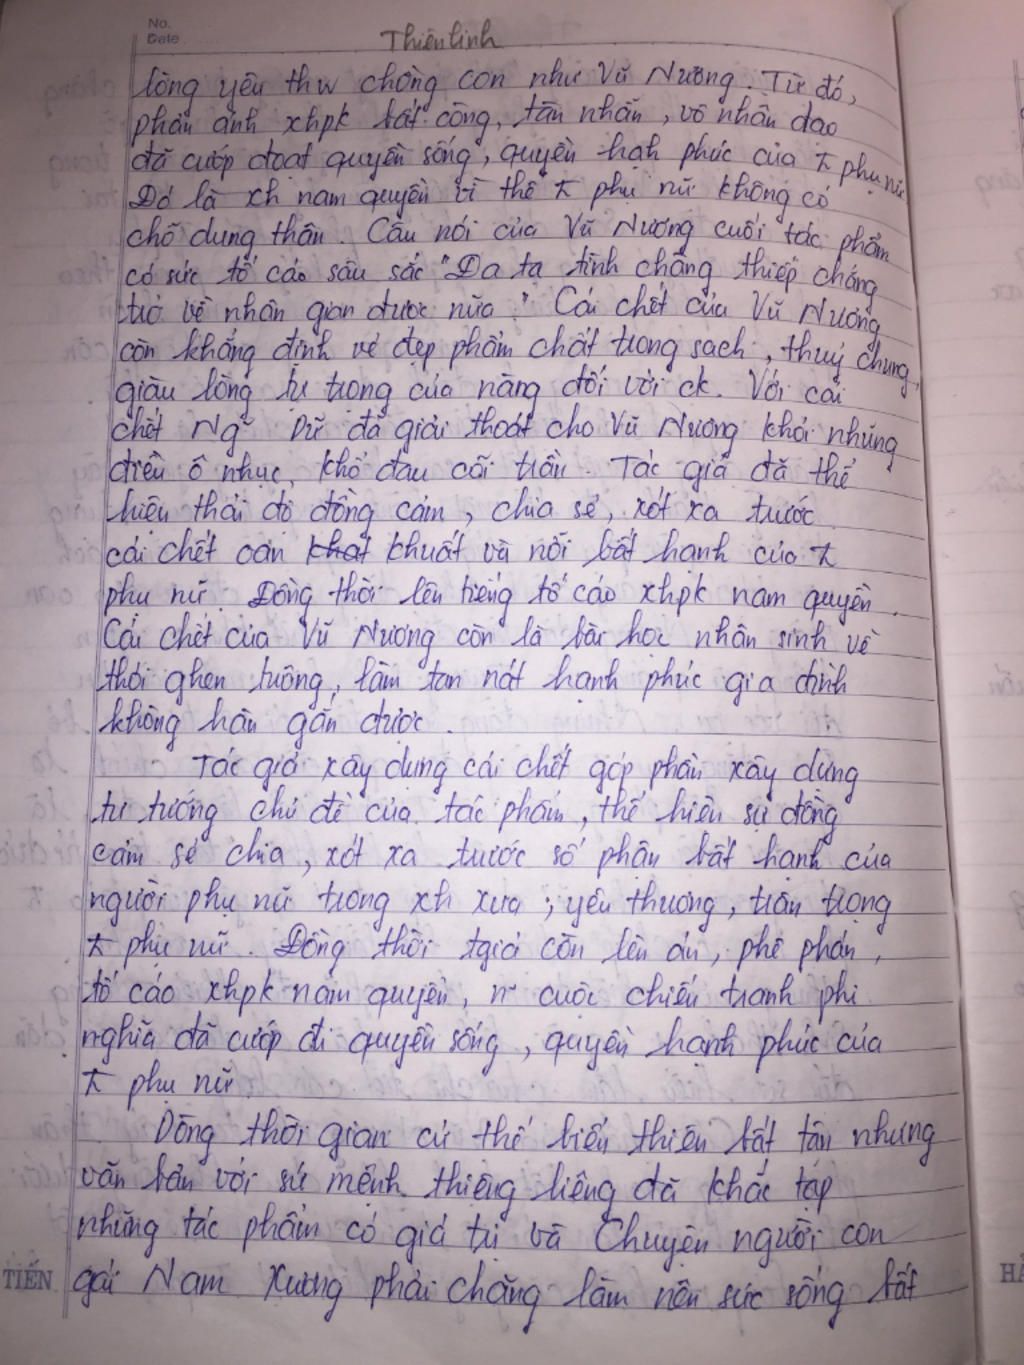 No.
Date
Thiên linh
lòng yêu thw chồng con như Vũ Nương. Từ đó,
phản ánh xhpk bất công, tàn nhẫn, vô nhân đạo
đã cướp đoạt quyền sống, quyền hạh phúc của ㅈ phụ nữ
Đó là xh nam quyền vì thế ㅈ phụ nữ không có
chỗ dung thân. Câu nói của Vũ Nương cuối tác phẩm
có sức tố cáo sâu sắc "Đa tạ tình chàng thiếp chẳng
trở về nhân gian được nữa." Cái chết của Vũ Nương
còn khẳng định vẻ đẹp phẩm chất trong sạch, thuỷ chung,
giàu lòng tự trọng của nàng đối với ck. Với cái
chết Ng~ Dữ đã giải thoát cho Vũ Nương khỏi những
điều ô nhục, khổ đau cõi trần. Tác giả đã thể
hiện thái độ đồng cảm, chia sẻ, xót xa trước
cái chết oan khuất và nỗi bất hạnh của ㅈ
phụ nữ. Đồng thời lên tiếng tố cáo xhpk nam quyền.
Cái chết của Vũ Nương còn là bài học nhân sinh về
thói ghen tuông, làm tan nát hạnh phúc gia đình
không hàn gắn được.
Tác giả xây dựng cái chết góp phần xây dựng
tư tưởng chủ đề của tác phẩm, thể hiện sự đồng
cảm sẻ chia, xót xa trước số phận bất hạnh của
người phụ nữ trong xh xưa; yêu thương, trân trọng
ㅈ phụ nữ. Đồng thời tgiả còn lên án, phê phán,
tố cáo xhpk nam quyền, n~ cuộc chiến tranh phi
nghĩa đã cướp đi quyền sống, quyền hạnh phúc của
ㅈ phụ nữ
Dòng thời gian cứ thế biến thiên bất tận nhưng
văn bản với sứ mệnh thiêng liêng đã khắc tạp
những tác phẩm có giá trị và Chuyện người con
gái Nam Xương phải chăng làm nên sức sống bất
TIẾN